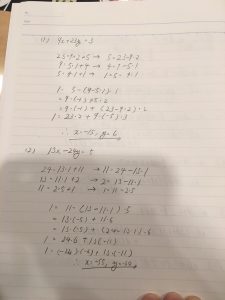 (1) 9x+23y=3
23=9·2+5 → 5=23-9·2
9=5·1+4 → 4=9-5·1
5=4·1+1 → 1=5-4·1
1=5-(9-5·1)·1
=9·(-1)+5·2
=9·(-1)+(23-9·2)·2
1=23·2+9·(-5)
∴ x=-15, y=6
(2) 13x-24y=5
24=13·1+11 → 11=24-13·1
13=11·1+2 → 2=13-11·1
11=2·5+1 → 1=11-2·5
1=11-(13-11·1)·5
=13·(-5)+11·6
=13·(-5)+(24-13·1)·6
1=24·6+13(-11)
1=(-24)(-6)+13(-11)
∴ x=-55, y=-30